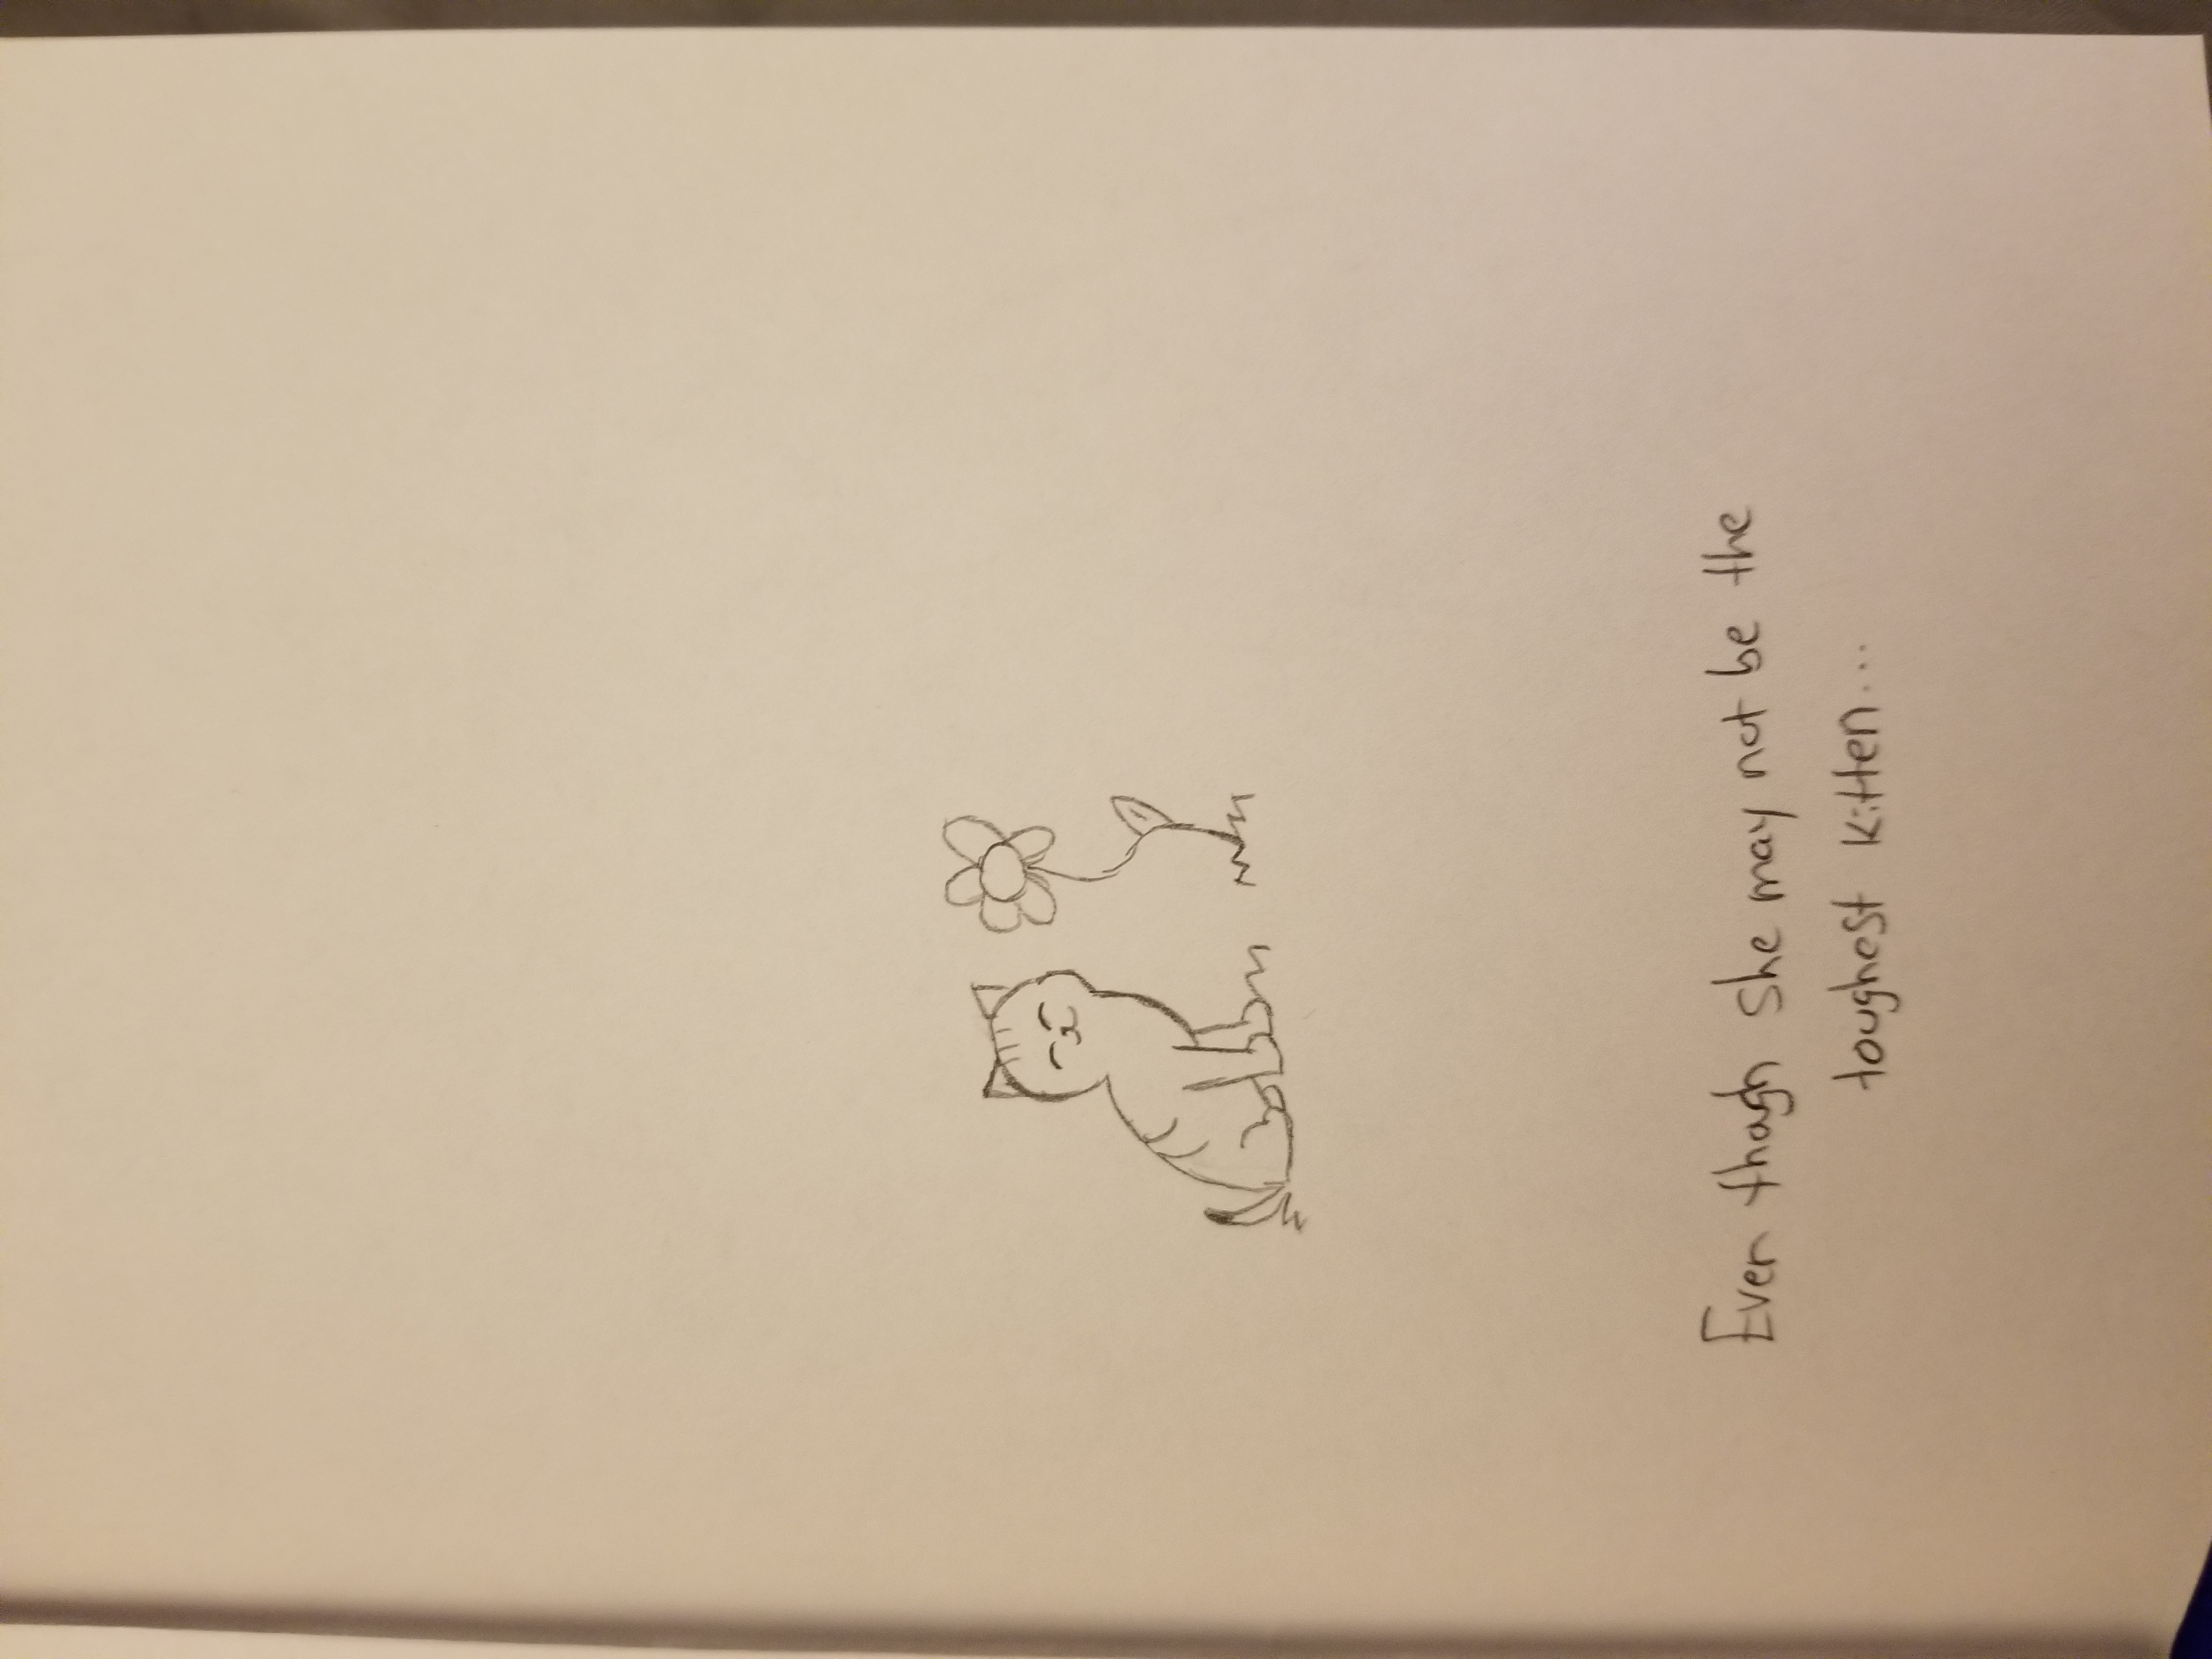 Even though she may not be the
toughest kitten...